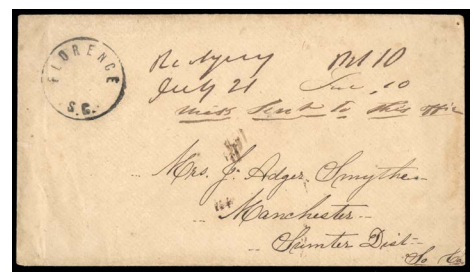 FLORENCE
S.C.
July 21. Due 10
Miss Sent to this office
Mrs. J. Adger. Smythe
Manchester
Sumter Dist
So Ca